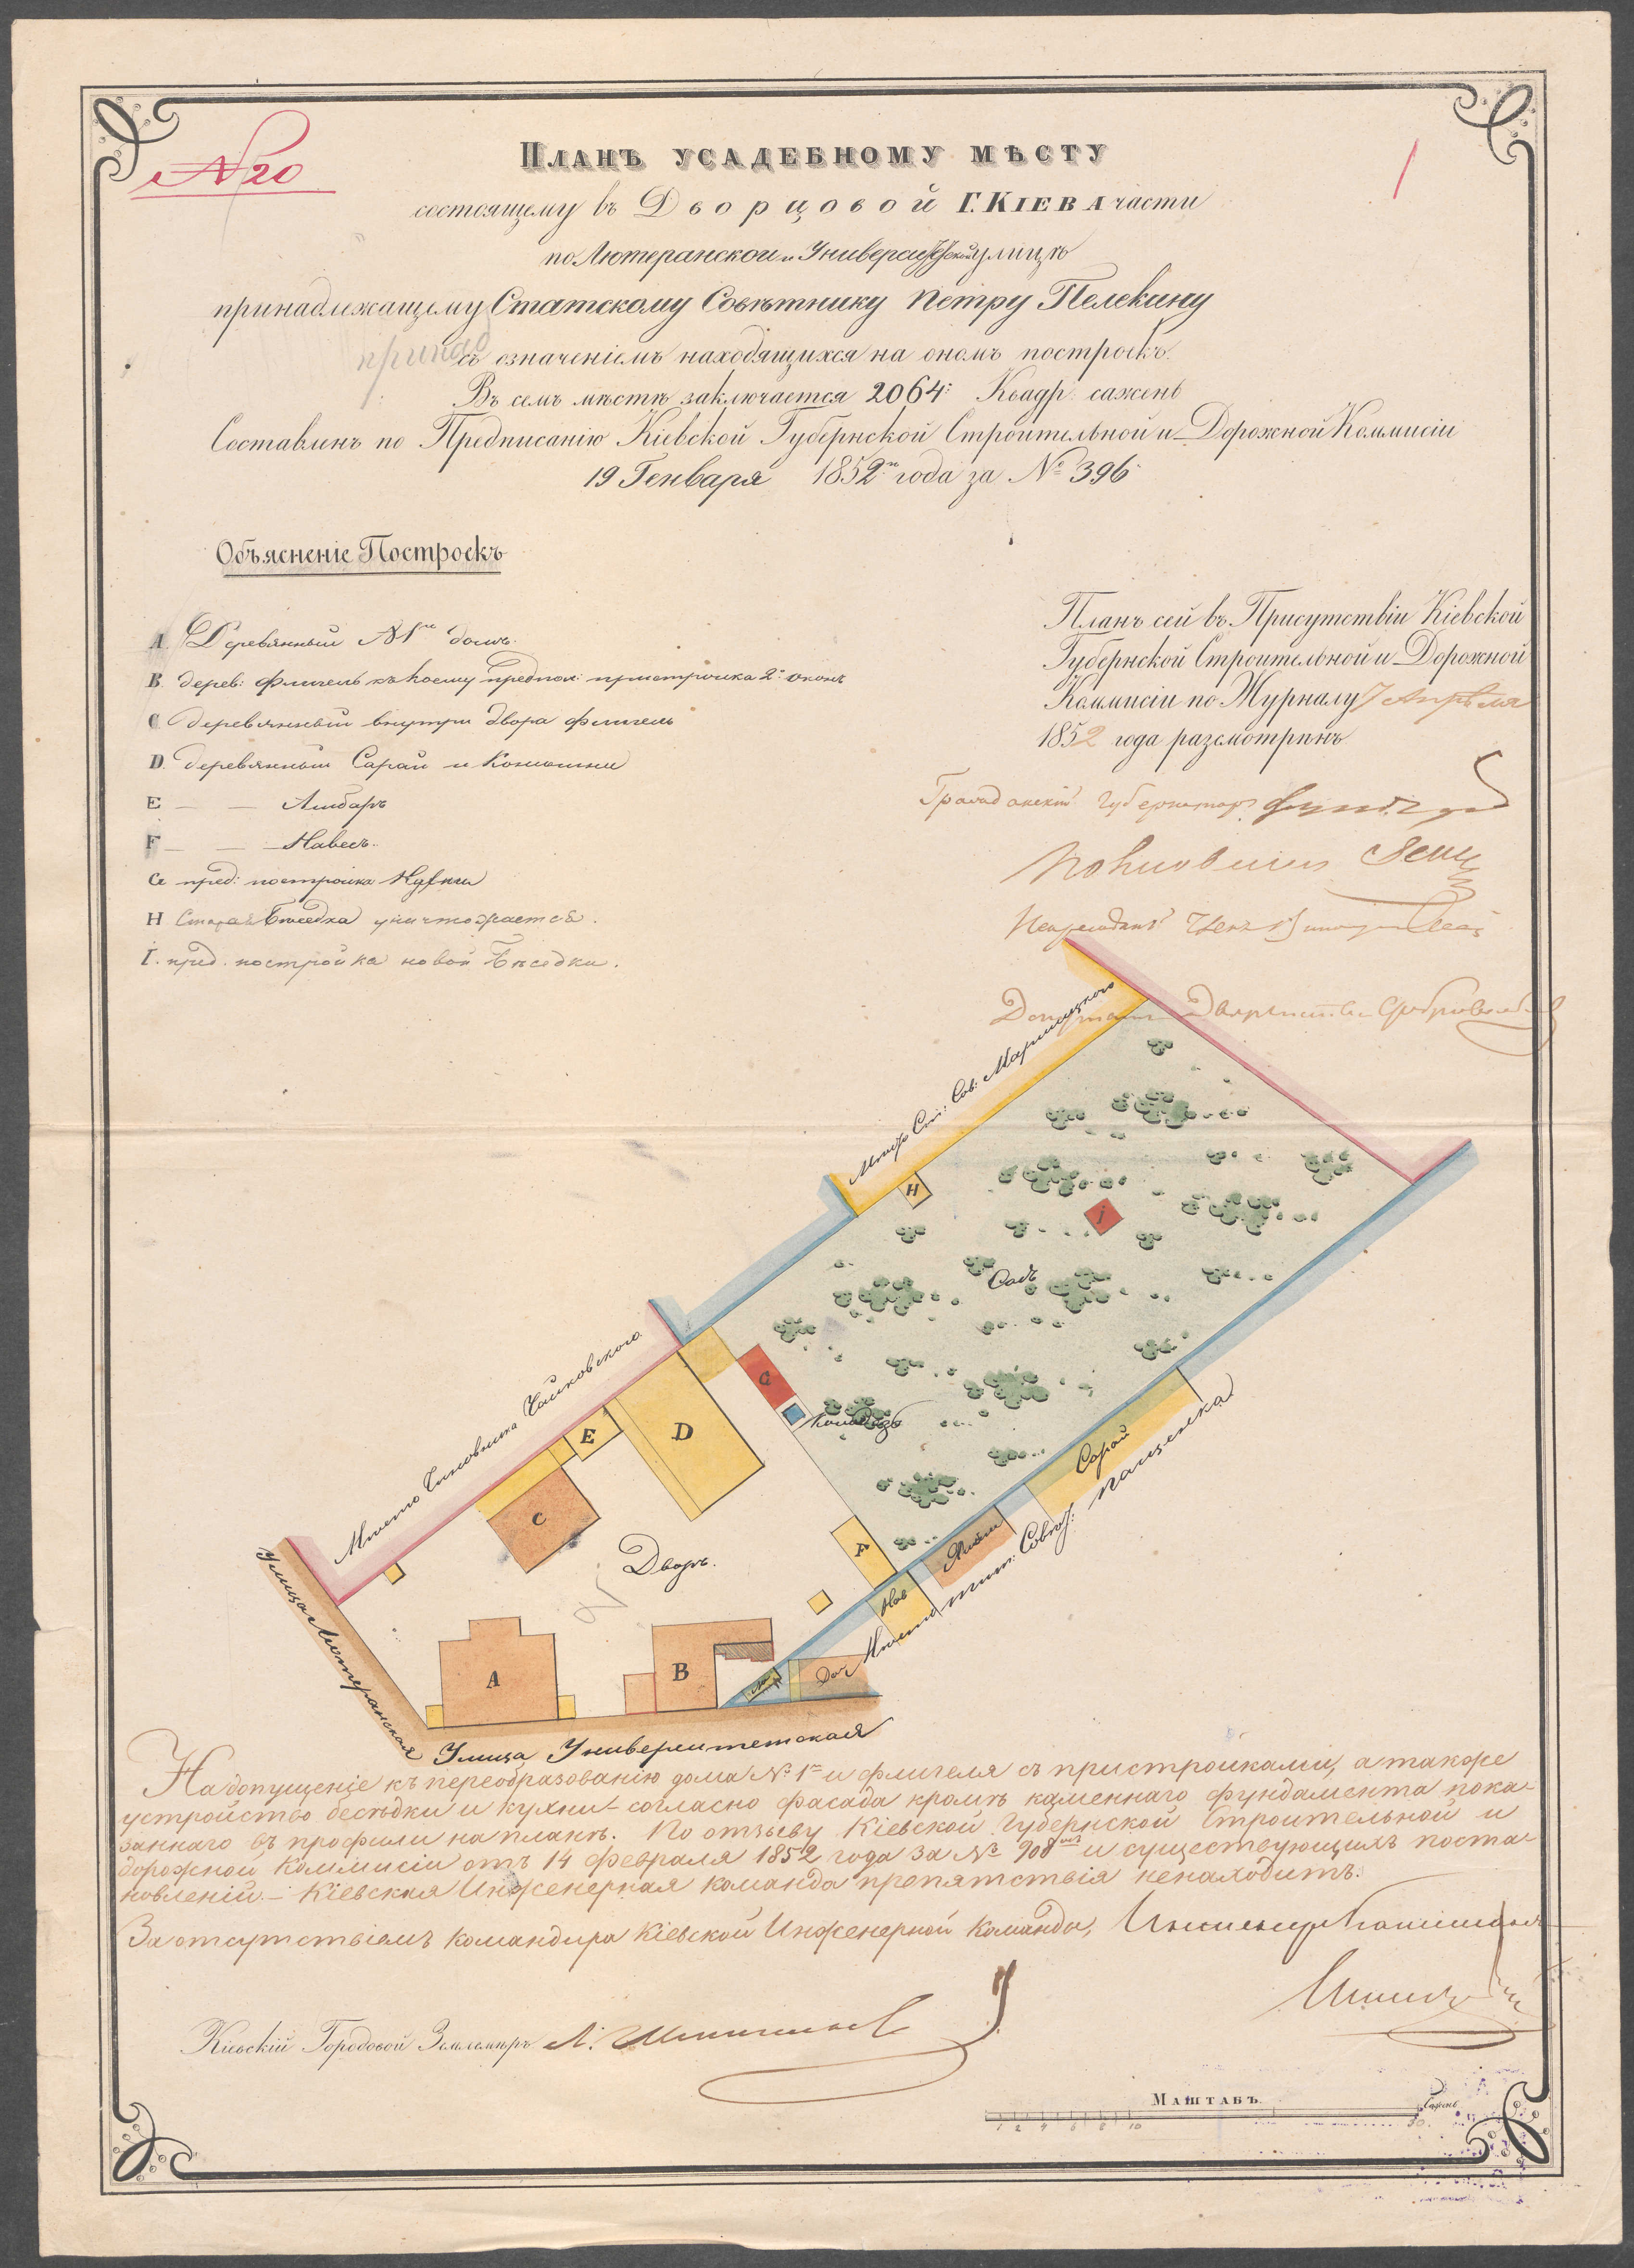 № 20
1
Планъ усадебному мѣсту
состоящему въ Дворцовой Г. Кіева части
по Лютеранской и Университетской улицѣ
принадлежащему Статскому Совѣтнику Петру Пелекину
принад
съ означеніемъ находящихся на ономъ построекъ.
Въ семъ мѣстѣ заключается 2064: Квадр: сажень
Составленъ по Предписанію Кіевской Губернской Строительной и Дорожной Коммисіи
19 Генваря 1852го года за № 396
Объясненіе Построекъ
A. Деревянный № 1й домъ.
B. дерев: флигель къ коему предпол: пристройка 2х оконъ
C деревянный внутри двора флигель
D. деревянный Сарай и Конюшни
E — — Амбаръ
F — — Навесъ.
G пред: постройка Кухни
H Старая Бѣседка уничтожается.
I. пред. постройка новой Бѣседки.
Планъ сей въ Присутствіи Кіевской
Губернской Строительной и Дорожной
Коммисіи по Журналу 7 Апрѣля
1852 года разсмотрѣнъ
Гражданскій Губернаторъ
Полковникъ
Депутатъ Дворянства
Мѣсто Ст: Сов:
H
j
Садъ
Мѣсто Чиновника Чайковского
G
Колодязь
E
D
C
Дворъ.
A
Сарай
Нав
Мѣсто Стат: Совѣт:
Дом
A
B
Улица Лютеранская
Улица Университетская
На допущеніе къ переобразованію дома № 1го и флигеля съ пристройками, а также
устройство бесѣдки и кухни – согласно фасада кромѣ каменнаго фундамента пока-
заннаго въ профили на планѣ. По отзыву Кіевской Губернской Строительной и
дорожной Коммисіи отъ 14 февраля 1852 года за № 908мъ и существующихъ поста-
новленій. – Кіевская Инженерная команда препятствія ненаходитъ.
За отсутствіемъ командира Кіевской Инженерной Команды, Инженеръ
Кіевскій Городовой Землемѣръ А.
Маштабъ
Сажень
1 2 4 6 8 10 30